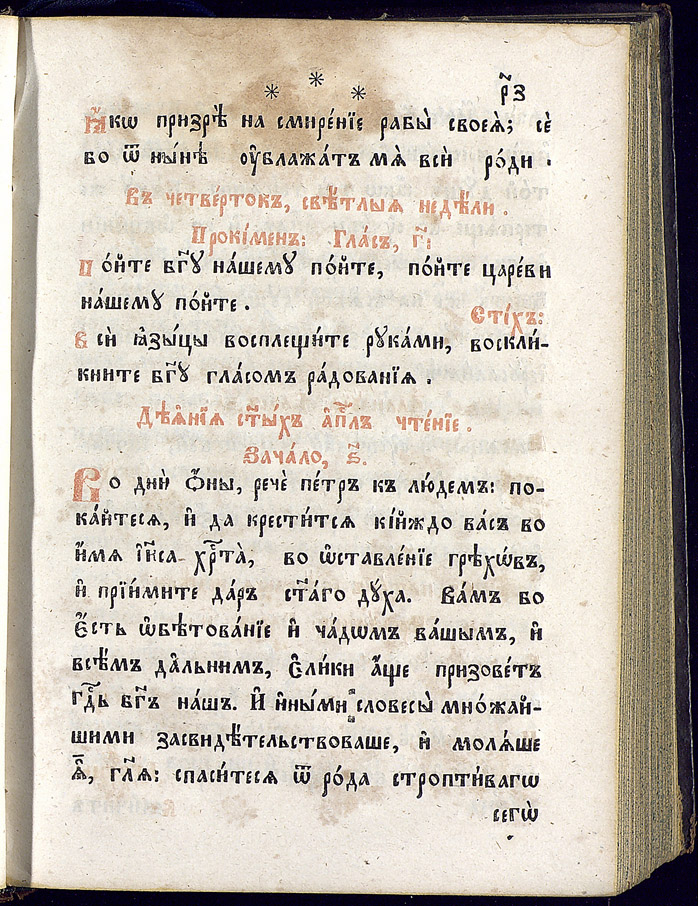 * * *
р҃з
Ꙗ҆́кѡ призрѣ̀ на смире́нїе рабы̀ своеѧ̀; се́
бо ѿ ны́нѣ ᲂу҆блажа́тъ мѧ̀ всѝ ро́ди.
Въ четверто́къ, свѣ́тлыѧ недѣ́ли.
Проки́менъ: Гла́съ, г҃:
По́йте бг҃ꙋ на́шемꙋ по́йте, по́йте царе́ви
на́шемꙋ по́йте.
Сті́хъ:
Всѝ ꙗ҆зы́цы восплещи́те рꙋка́ми, воскли́-
кните бг҃ꙋ гла́сомъ ра́дованїѧ.
Дѣѧ́нїѧ ст҃ы́хъ а҆пⷭ҇лъ чте́нїе.
Зача́ло, ѕ҃.
Во днѝ ѻ҆́ны, речѐ пе́тръ къ лю́демъ: по-
ка́йтесѧ, и҆ да крести́тсѧ кі́йждо ва́съ во
и҆́мѧ і҆и҃са хрⷭ҇та̀, во ѡ҆ставле́нїе грѣхѡ́въ,
и҆ прїи́мите да́ръ ст҃а́го дꙋ́ха. Ва́мъ бо
є҆́сть ѡ҆бѣтова́нїе и҆ ча́дѡмъ ва́шымъ, и҆
всѣ́мъ да́льнимъ, є҆ли́ки а҆́ще призове́тъ
гдⷭ҇ь бг҃ъ на́шъ. И҆ и҆ны́ми словесы̀ мно́жай-
шими засвидѣ́тельствоваше, и҆ молѧ́ше
ѧ҆̀, гл҃ѧ: спаси́тесѧ ѿ ро́да стропти́вагѡ
сегѡ̀